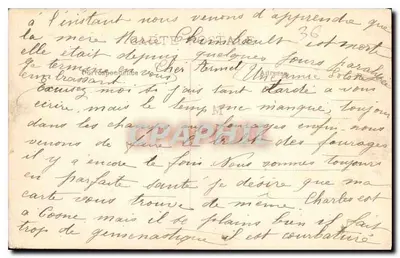 à l'instant nous venons d'apprendre que
la mere Chambault est morte 36
CARTE POSTALE
elle était depuis quelques jours
Je termine Cher
Correspondance
en t'embrassant vous
Excusez moi si jais tant tardé a vous
ecrire, mais le temps me manque, toujours
dans les fourages enfin nous
CPAPHIL
venons de faire le des fourages
il y a encore le foin Nous sommes toujours
en parfaite santé je désire que ma
carte vous trouve de même. Charles est
a Cosne mais il se plains bien il fait
trop de gimnastique il est courbaturé